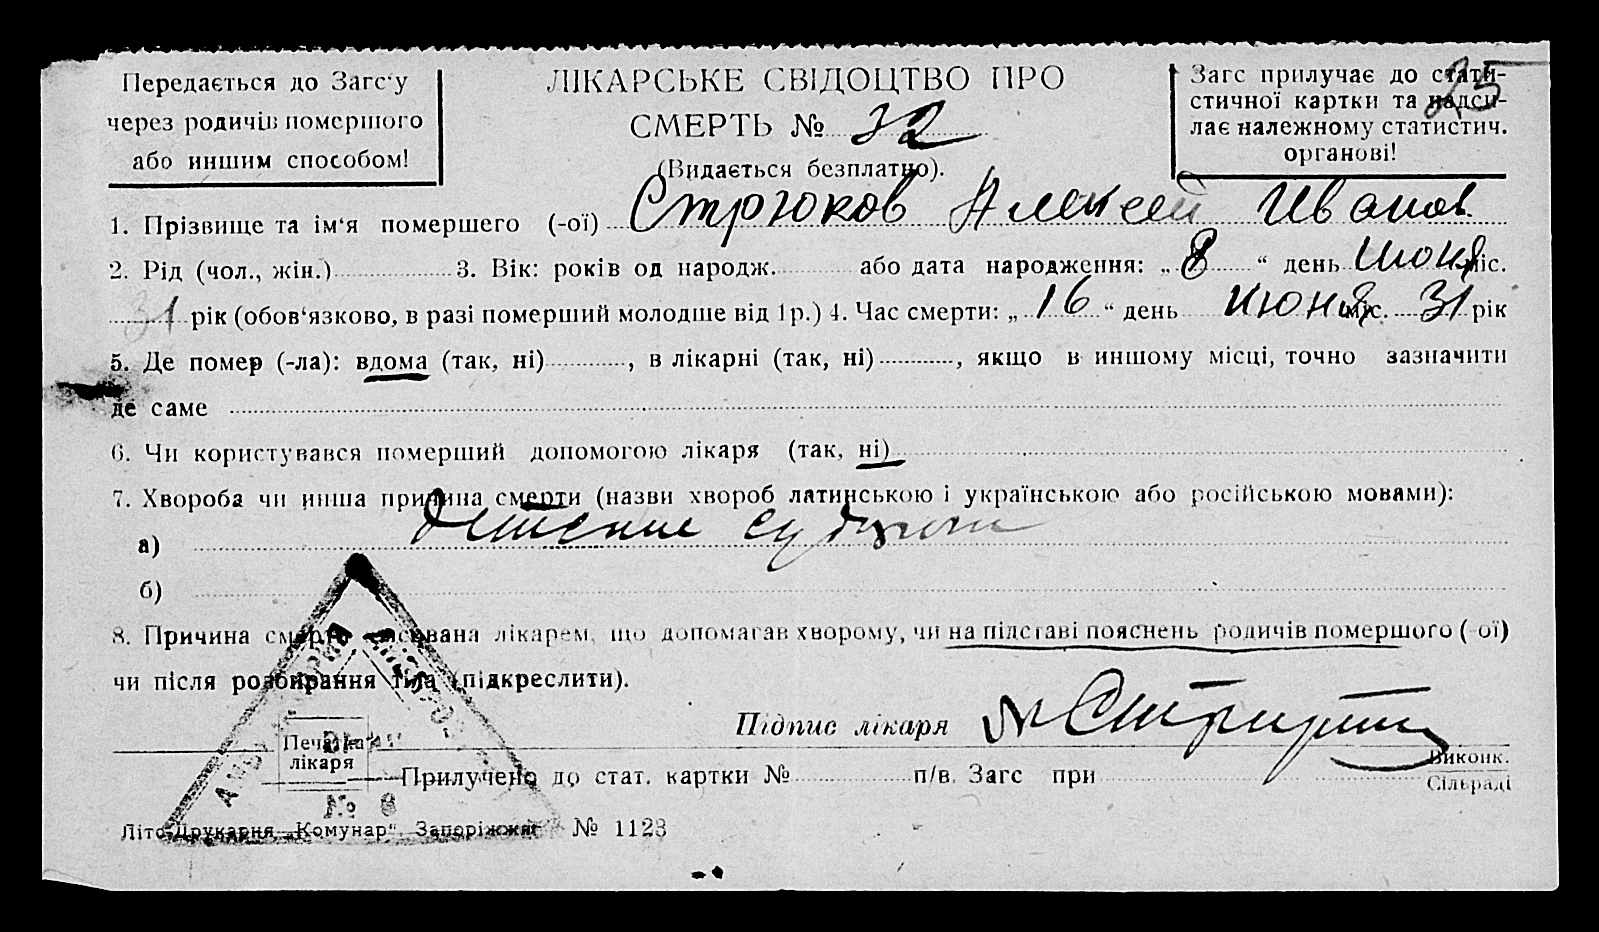 Передається до Загс'у
через родичів помершого
або иншим способом!
ЛІКАРСЬКЕ СВІДОЦТВО ПРО
СМЕРТЬ № 32
(Видається безплатно).
25
Загс прилучає до стати-
стичної картки та надси-
лає належному статистич.
органові!
1. Прізвище та ім'я помершего (-ої) Стрюков Алексей Иванов
2. Рід (чол., жін.) 3. Вік: років од народж. або дата народження: „ 8 “ день Июня міс.
31 рік (обов'язково, в разі померший молодше від 1р.) 4. Час смерти: „ 16 “ день Июня міс. 31 рік
5. Де помер (-ла): вдома (так, ні) , в лікарні (так, ні) , якщо в иншому місці, точно зазначити
де саме
6. Чи користувався померший допомогою лікаря (так, ні)
7. Хвороба чи инша причина смерти (назви хвороб латинською і українською або російською мовами):
а) детские судороги
б)
8. Причина смерти вписвана лікарем, що допомагав хворому, чи на підставі пояснень родичів помершого (-ої)
чи після розбирання тіла (підкреслити).
Підпис лікаря
Печатка
лікаря
Прилучено до стат. картки № п/в. Загс при Виконк.
Сільраді
№ 8
Літо-Друкарня „Комунар“ Запоріжжя № 1123